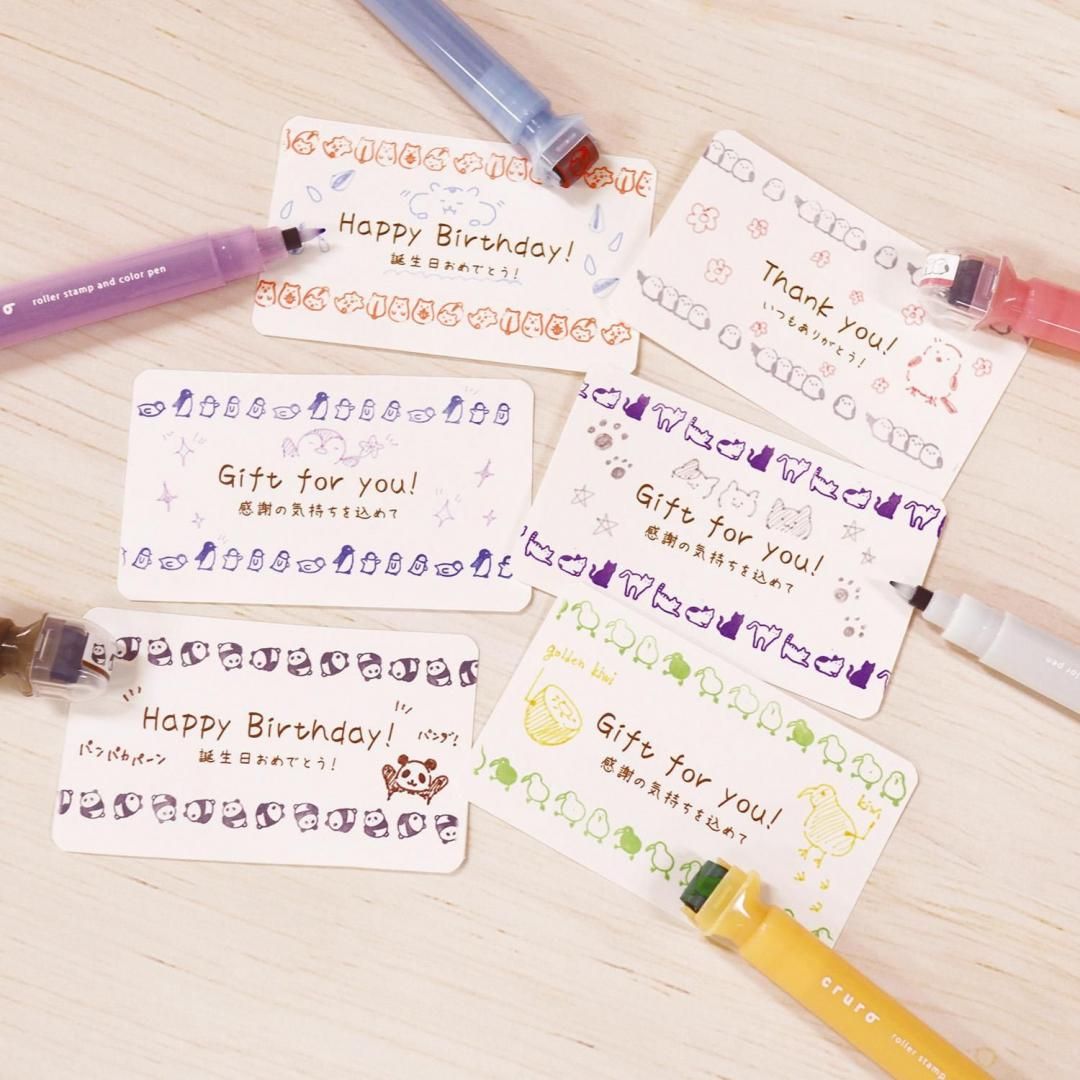 Happy Birthday!
誕生日おめでとう!
roller stamp and color pen
Thank you!
いつもありがとう!
Gift for you!
感謝の気持ちを込めて
Gift for you!
感謝の気持ちを込めて
lor pen
Happy Birthday!
誕生日おめでとう!
パンパカパーン
パンダ!
golden kiwi
Gift for you!
感謝の気持ちを込めて
kiwi
cruro
roller stamp